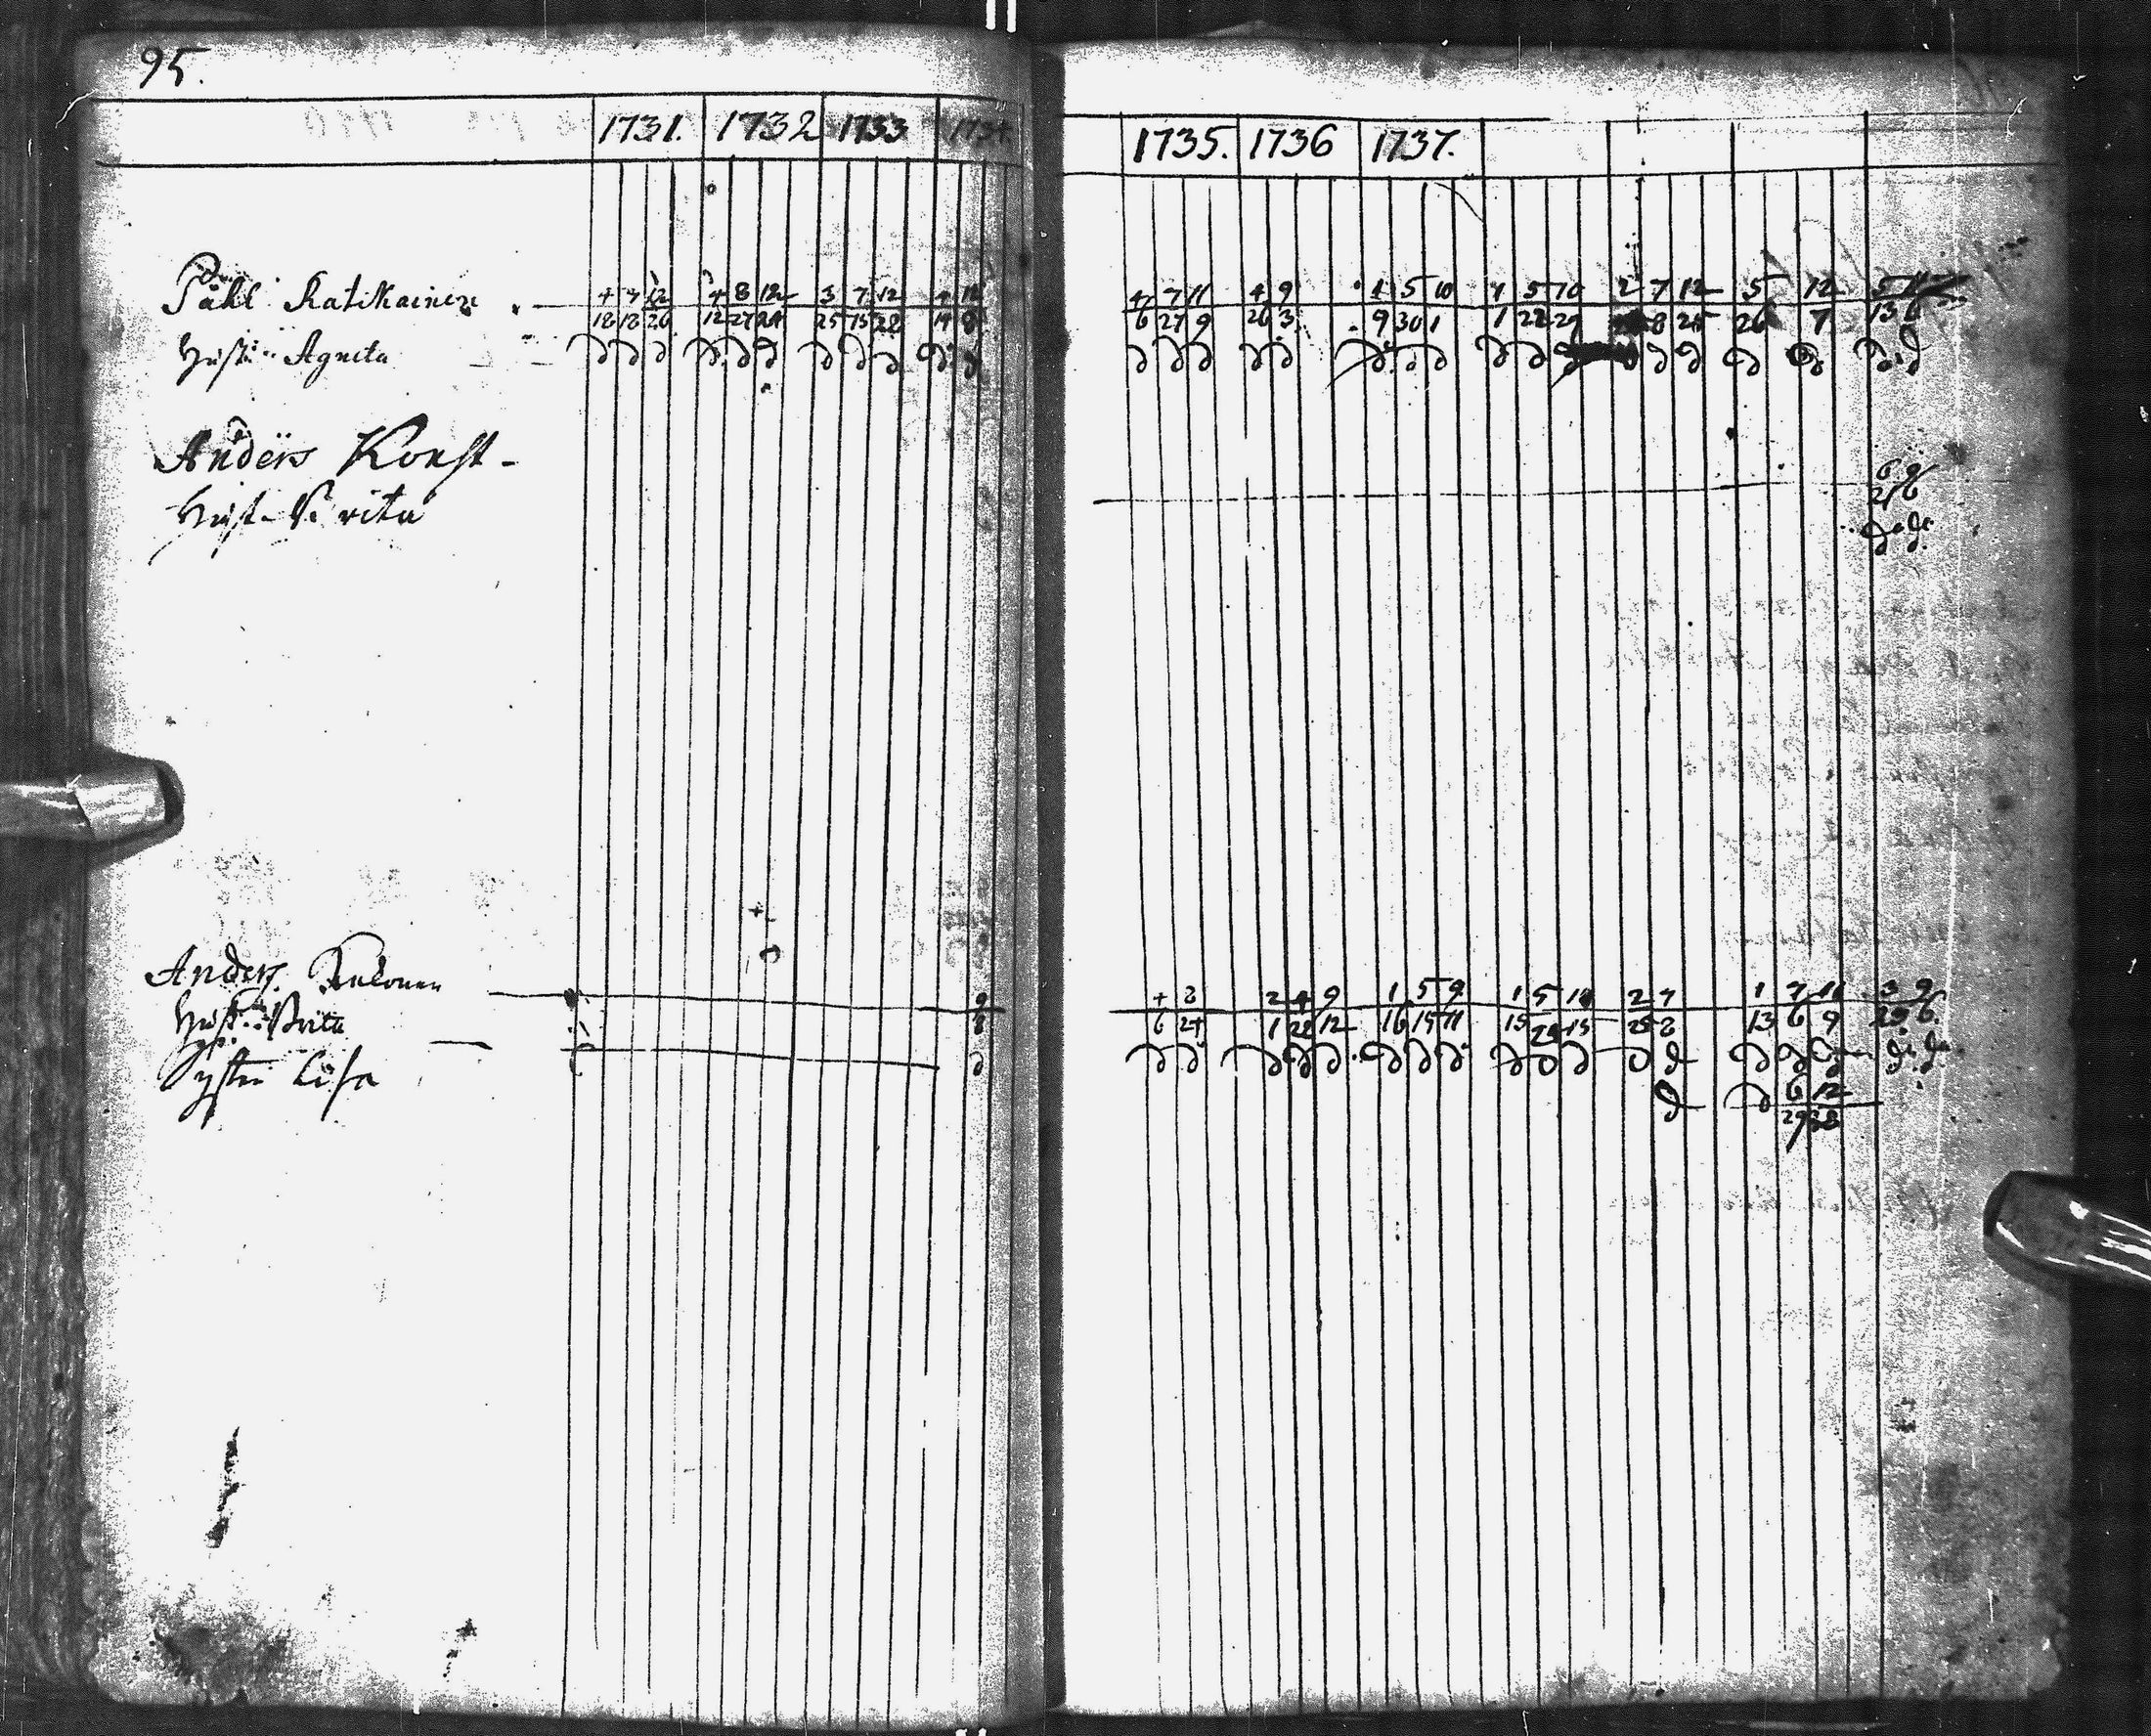 95.
1731. 1732 1733 1734
1735. 1736 1737.
Påhl Ratikainen
4 7 12 4 8 12 3 7 12 4 12
18 18 26 12 27 24 25 15 22 19 8
4 7 11 4 9 1 5 10 4 5 10 2 7 12 5 12 5 11
6 27 9 26 3 9 30 1 1 22 29 8 25 26 7 13 6
Hust: Agneta
Anders Konst
Hust. Brita
6 9
2 6
Anders
Hust: Brita
9
8
4 8 2 4 9 1 5 9 1 5 10 2 7 1 7 11 3 9
6 24 1 22 12 16 15 11 15 24 15 25 8 13 6 9 29 6
Syster Lisa
6 12
29 28